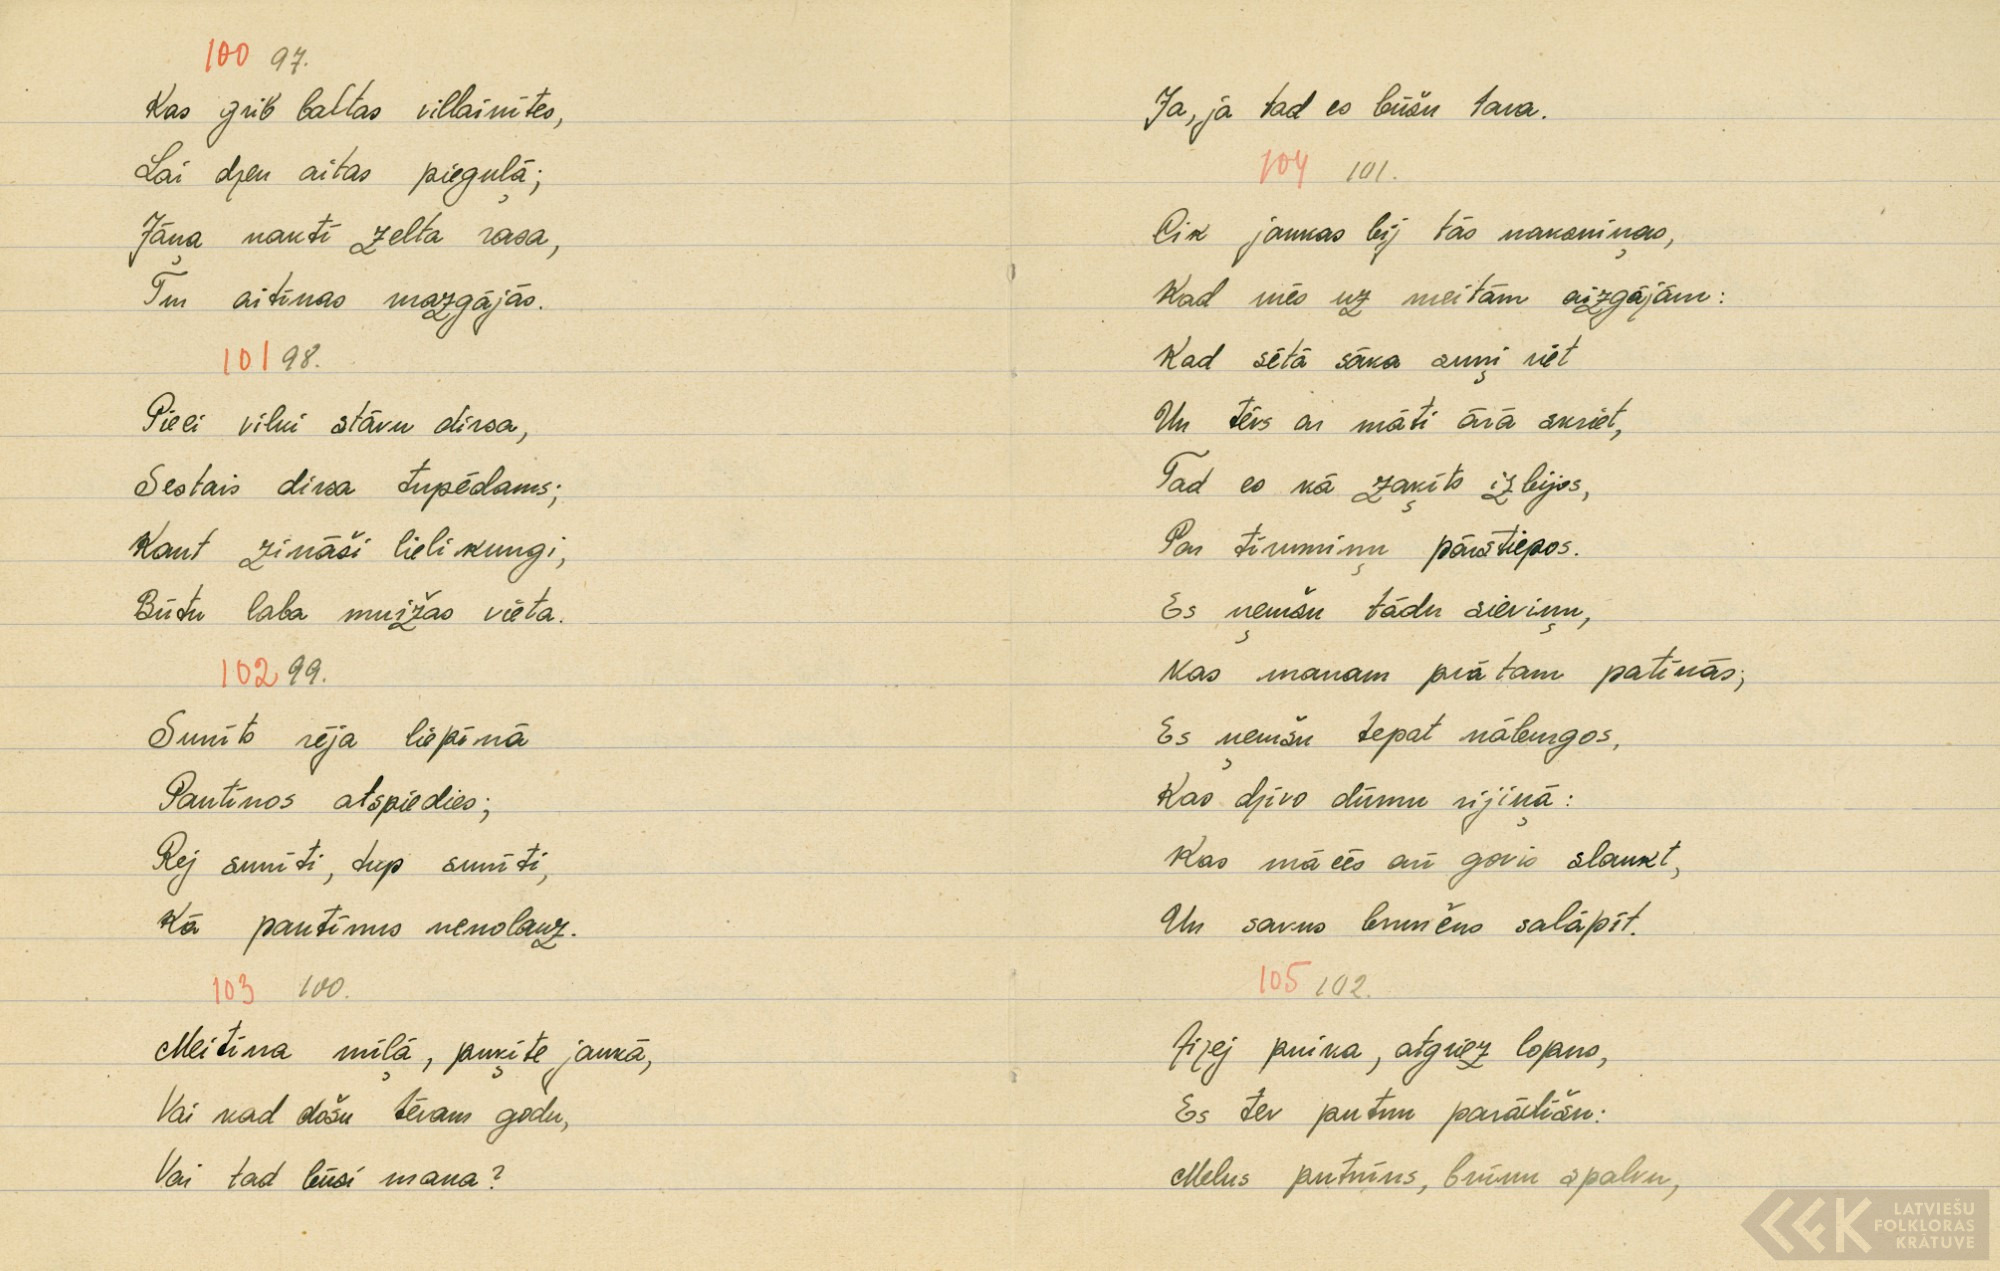 100 97.
Kas grib baltas villainītes,
Lai dzen aitas pieguļā;
Jāņa naktī zelta rasa,
Tur aitiņas mazgājās.
101 98.
Pieci vilki stāvu dirsa,
Sestais dirsa tupēdams;
Kaut zināši lieli kungi,
Būtu laba muižas vieta.
102 99.
Sunīts rēja liepiņā
Pautiņos atspiedies;
Rej sunīti, tup sunīti,
Kā pautiņus nenolauz.
103 100.
Meitiņa mīļā, puķīte jaukā,
Vai kad došu tēvam godu,
Vai tad būsi mana?
Ja, ja tad es būšu tava.
104 101.
Cik jaukas bij tās naksniņas,
Kad mēs uz meitām aizgājām:
Kad sētā sāka suņi riet
Un tēvs ar māti ārā skriet,
Tad es kā zaķīts izbijos,
Par tīrumiņu pārstiepos.
Es ņemšu tādu sieviņu,
Kas manam prātam patīkās;
Es ņemšu tepat nāburgos,
Kas dzīvo dūmu rijiņā:
Kas mācēs arī govis slaukt,
Un savus brunčus salāpīt.
105 102.
Aizej puika, atgriez lopus,
Es tev putnu parādīšu:
Melns putniņš, brūnu spalvu,
LATVIEŠU
FOLKLORAS
KRĀTUVE